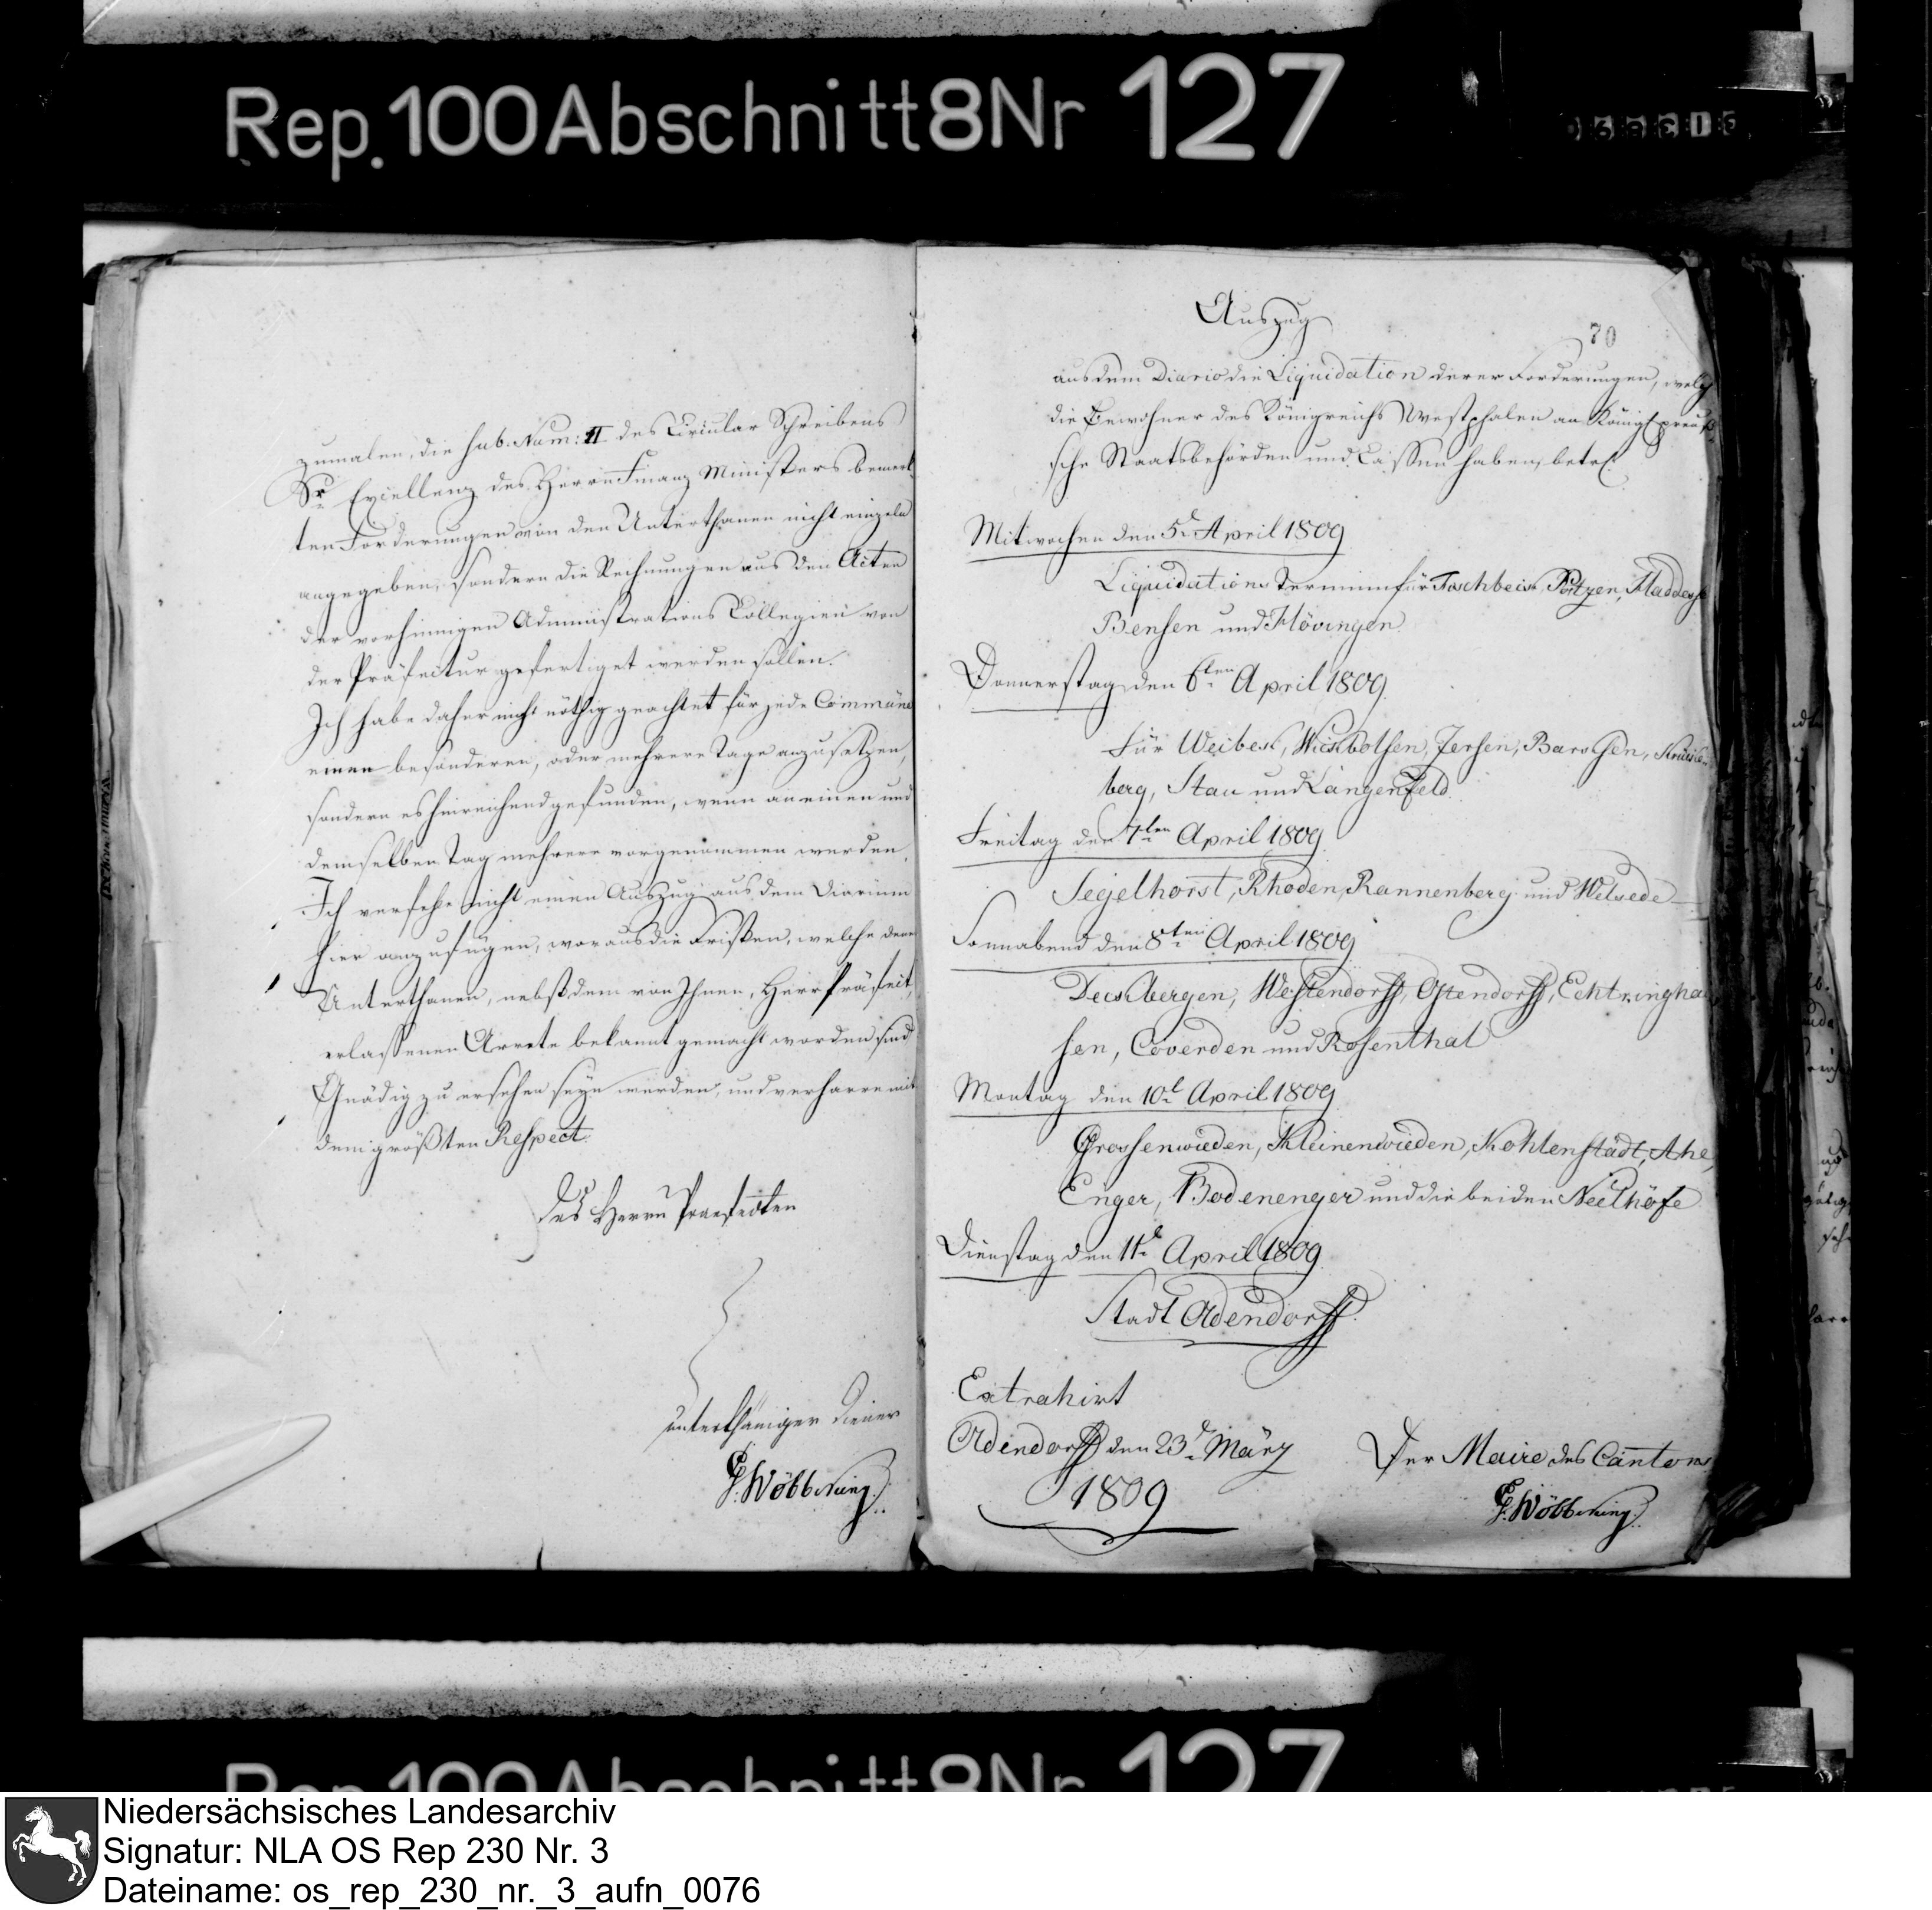 Rep. 100 Abschnitt 8 Nr 127
zumalen, die sub. Num: II des Circular Schreibens
Sr Excellenz des Herrn Finanz Ministers bemerk
ten Forderungen von den Unterthanen nicht einzeln
angegeben, sondern die Rechnungen aus den Acten
der vorhinnigen Administrations Collegien von
der Präfectur gefertiget werden sollen.
Ich habe daher nicht nöthig geachtet für jede Commüne
einen besonderen, oder mehrere Tage anzusetzen,
sondern es hinreichend gefunden, wenn an einen und
demselben Tag mehrere vorgenommen werden.
Ich verfehle nicht einen Auszug aus dem Diarium
hier anzufügen, woraus die Fristen, welche denen
Unterthanen, nebst dem von Ihnen, Herr Präfect,
erlassenen Arrete bekannt gemacht worden sind
Gnädig zu ersehen seyn werden, und verharre mit
dem größten Respect.
des Herrn Praefecten
unterthäniger Diener
Wöbbeking
Auszug
70
aus dem Diario die Liquidation derer Forderungen, welche
die Bewohner des Königreichs Westphalen an Königl preußi
sche Staatsbehörden und Cassen haben, betr.
Mitwochen den 5t April 1809
Liquidations Termin für Fuhlen Pötzen, Haddessen
Bensen und Höfingen
Donnerstag den 6ten April 1809.
für Weibeck, Wickbolsen, Zersen, Barksen, Krücke
berg, Stau und Langenfeld
Freitag den 7ten April 1809
Segelhorst, Rhoden, Rannenberg und Welsede
Sonnabend den 8ten April 1809
Deckbergen, Westendorff, Ostendorff, Echtringhau
sen, Coverden und Rosenthal
Montag den 10t April 1809
Grossenwieden, Kleinenwieden, Kohlenstädt, Ahe,
Enger, Bodenenger und die beiden Neelhöfe
Dienstag den 11t April 1809
Stadt Oldendorff.
Extrahirt
Oldendorff den 23t März
1809
Der Maire des Cantons
Wöbbeking
Rep. 100 Abschnitt 8 Nr 127
Niedersächsisches Landesarchiv
Signatur: NLA OS Rep 230 Nr. 3
Dateiname: os_rep_230_nr._3_aufn_0076